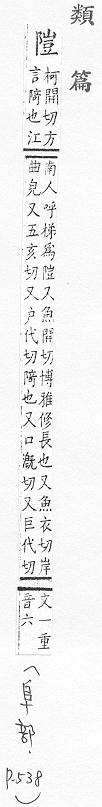 類篇
隑
柯開切方言隑也江
南人呼梯爲隑又魚開切博雅修長也又魚衣切岸
曲皃又五亥切又戶代切隑也又口漑切又巨代切
文一重音六
(阜部.
p.538)